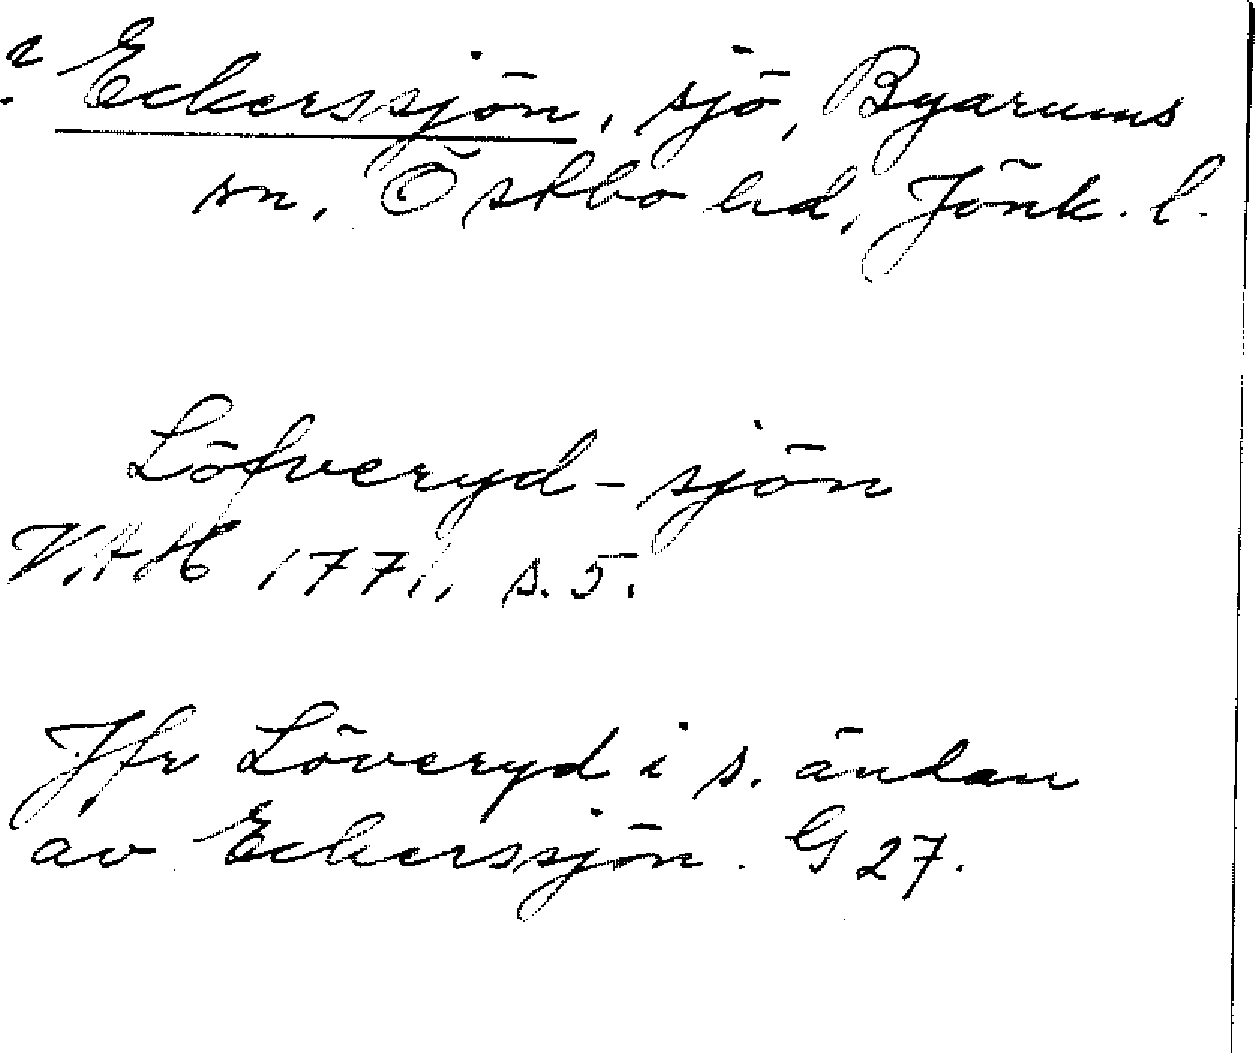 ? Eckerssjön, sjö, Byarums
sn, Östbo hd, Jönk. l.
Löfveryd-sjön
VAH 1771, s. 5.
Jfr Löveryd i s. ändan
av Eckerssjön. G 27.